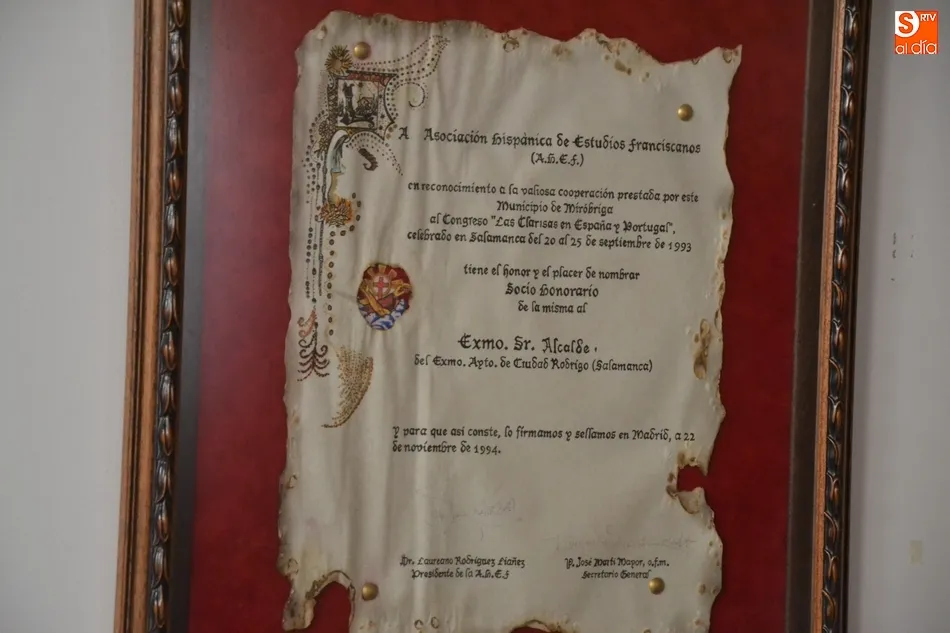 S RTV
al día
LA Asociación Hispánica de Estudios Franciscanos
(A.H.E.F.)
en reconocimiento a la valiosa cooperación prestada por este
Municipio de Miróbriga
al Congreso "Las Clarisas en España y Portugal",
celebrado en Salamanca del 20 al 25 de septiembre de 1993
tiene el honor y el placer de nombrar
Socio Honorario
de la misma al
Exmo. Sr. Alcalde,
del Exmo. Ayto. de Ciudad Rodrigo (Salamanca)
Y para que asi conste, lo firmamos y sellamos en Madrid, a 22
de noviembre de 1994.
Dr. Laureano Rodríguez Liañez
Presidente de la A.H.E.F
P. José Martí Mayor, o.f.m.
Secretario General